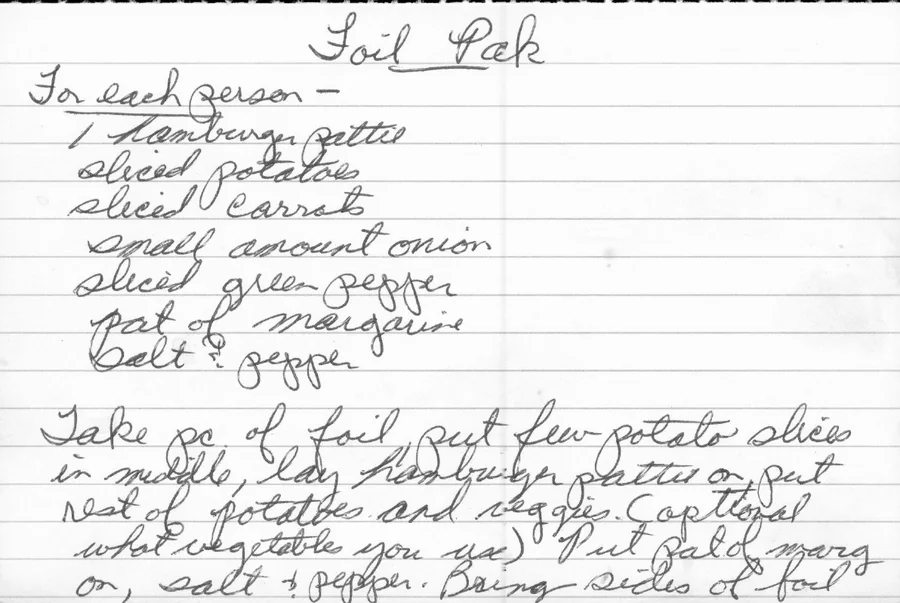 Foil Pak
For each person -
1 hamburger pattie
sliced potatoes
sliced carrots
small amount onion
sliced green pepper
pat of margarine
salt & pepper
Take pc. of foil, put few potato slices
in middle, lay hamburger pattie on, put
rest of potatoes and veggies. (optional
what vegetables you use) Put pat of marg
on, salt & pepper. Bring sides of foil